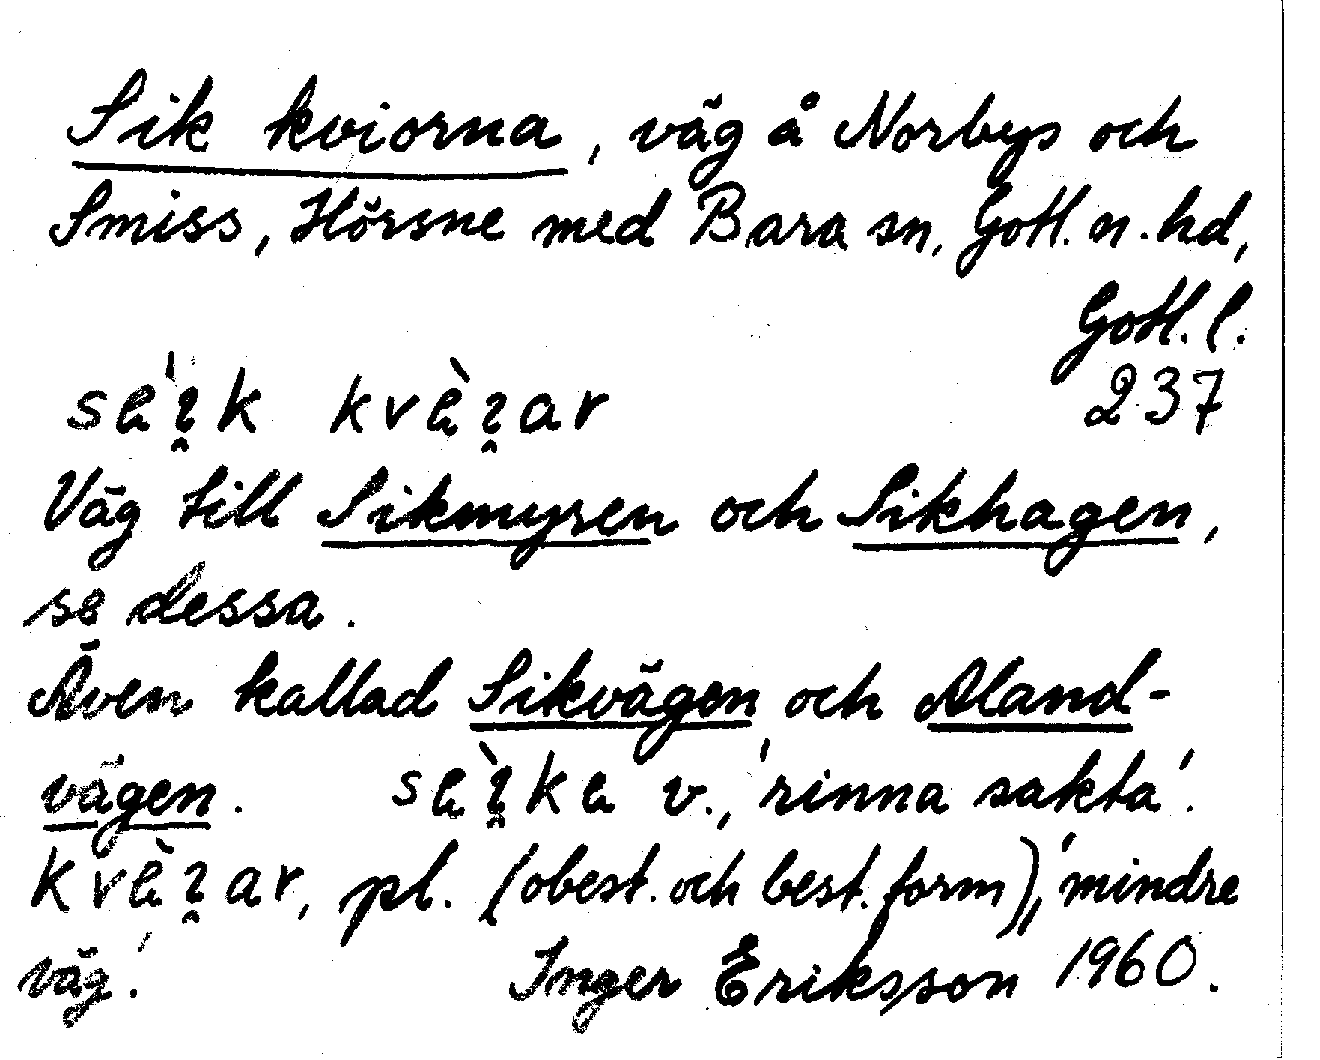 Sik kviorna, väg å Norbys och
Smiss, Hörsne med Bara sn, Gotl. n. hd,
Gotl. l.
237
Väg till Sikmyren och Sikhagen,
se dessa.
Även kallad Sikvägen och Aland-
vägen. v., 'rinna sakta'.
pl. (obest. och best. form), 'mindre
väg'.
Inger Eriksson 1960.